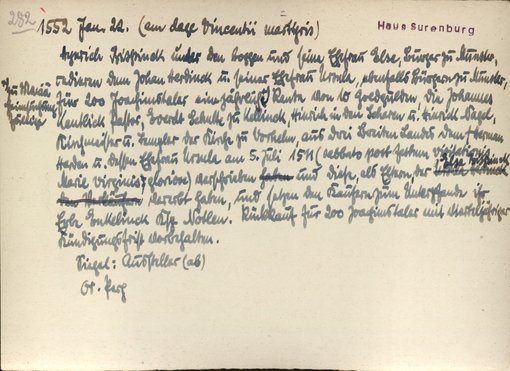 282
1552 Jan. 22. (am dage Vincentii martyris)
Haus Surenburg
Hinrich under den boggen und seine Ehefrau Else, Bürger zu Münster,
cedieren dem Johan Herdinck u. seiner Ehefrau Ursele, ebenfalls Bürgern zu Münster,
für 200 Joachimstaler eine jährliche Rente von 10 Goldgulden, die Johannes
Pastor, Everdt Schulte zu Hinrich in den Schoren u. Hinrich Nagel,
Kirchmeister u. Templer der Kirche zu Vorhelm, aus drei Breiten Landes dem Herman
Herden u. dessen Ehefrau Ursele am 5. Juli 1511 (sabbato post festum visitationis
Marie virginis gloriose) verschrieben und diese, als Eltern der Else
vererbt haben, und setzen den Käufern zum Unterpfande ihr
Erbe Ksp. Nottuln. Rückkauf für 200 Joachimstaler mit vierteljähriger
Kündigungsfrist vorbehalten.
Siegel: Aussteller (ab)
Or. Perg